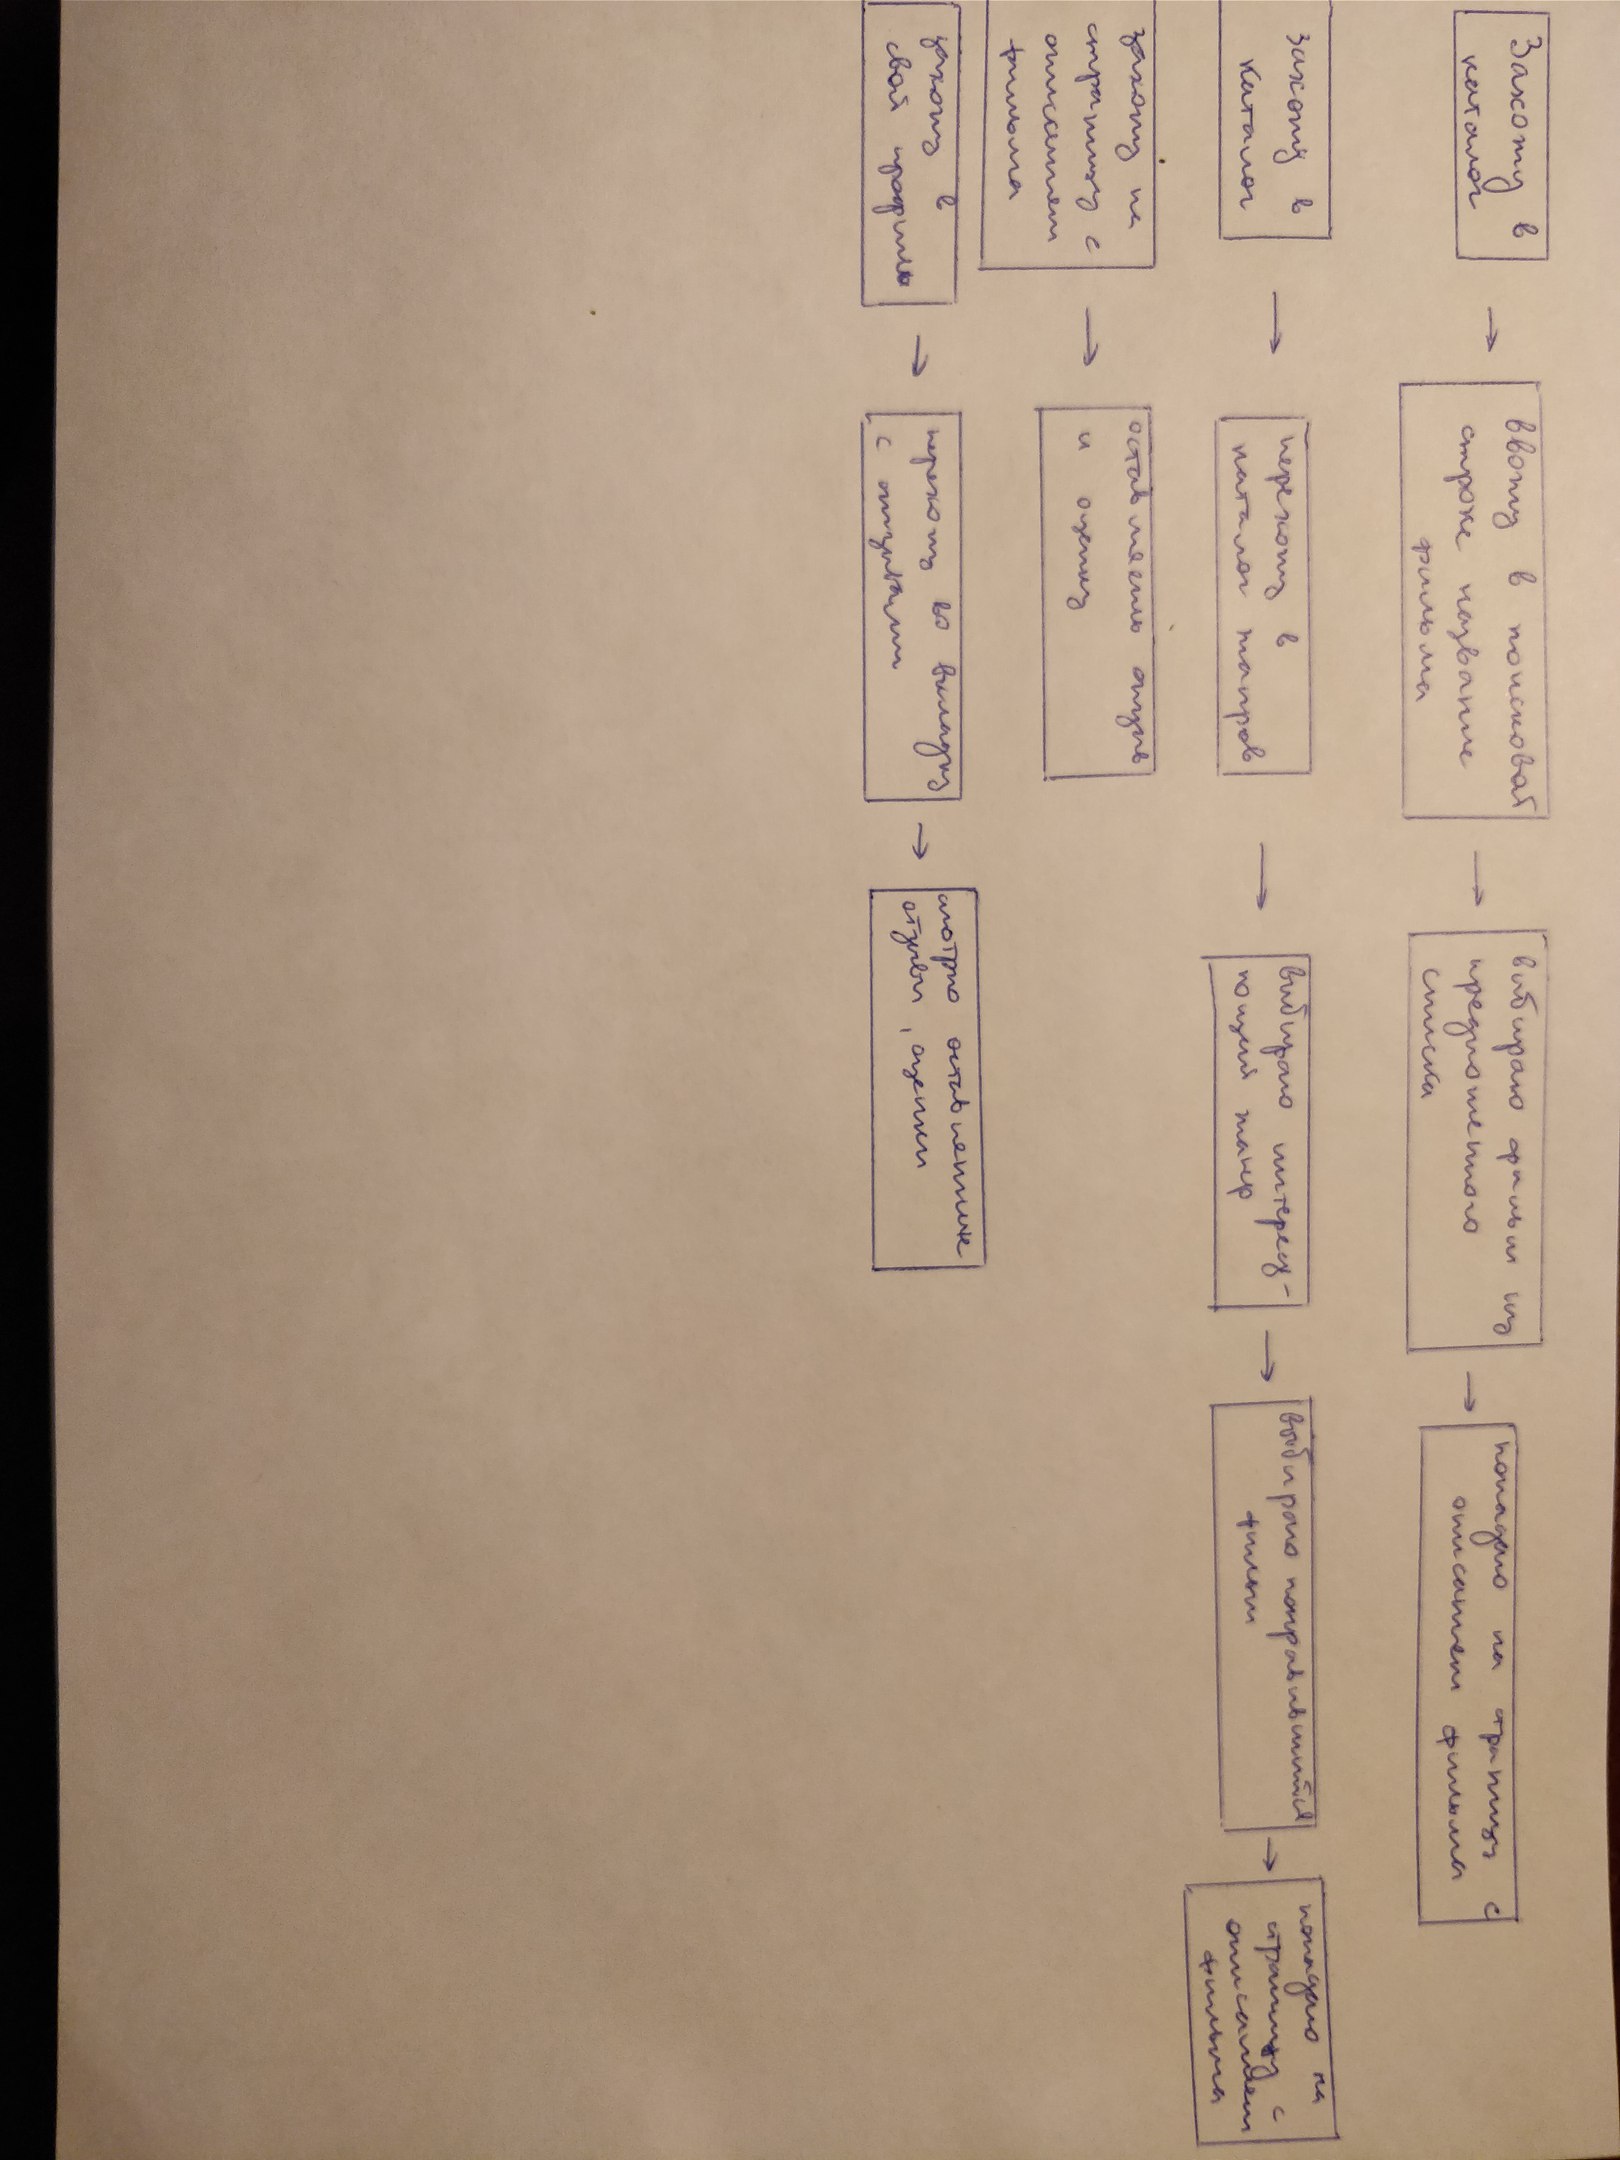 Захожу в
каталог
ввожу в поисковой
строке название
фильма
выбираю фильм из
предложенного
списка
попадаю на страницу с
описанием фильма
захожу в
каталог
перехожу в
каталог жанров
выбираю интересу-
ющий жанр
выбираю понравившийся
фильм
попадаю на
страницу с
описанием
фильма
захожу на
страницу с
описанием
фильма
оставляю отзыв
и оценку
захожу в
свой профиль
перехожу во вкладку
с отзывами
смотрю оставленные
отзывы, оценки